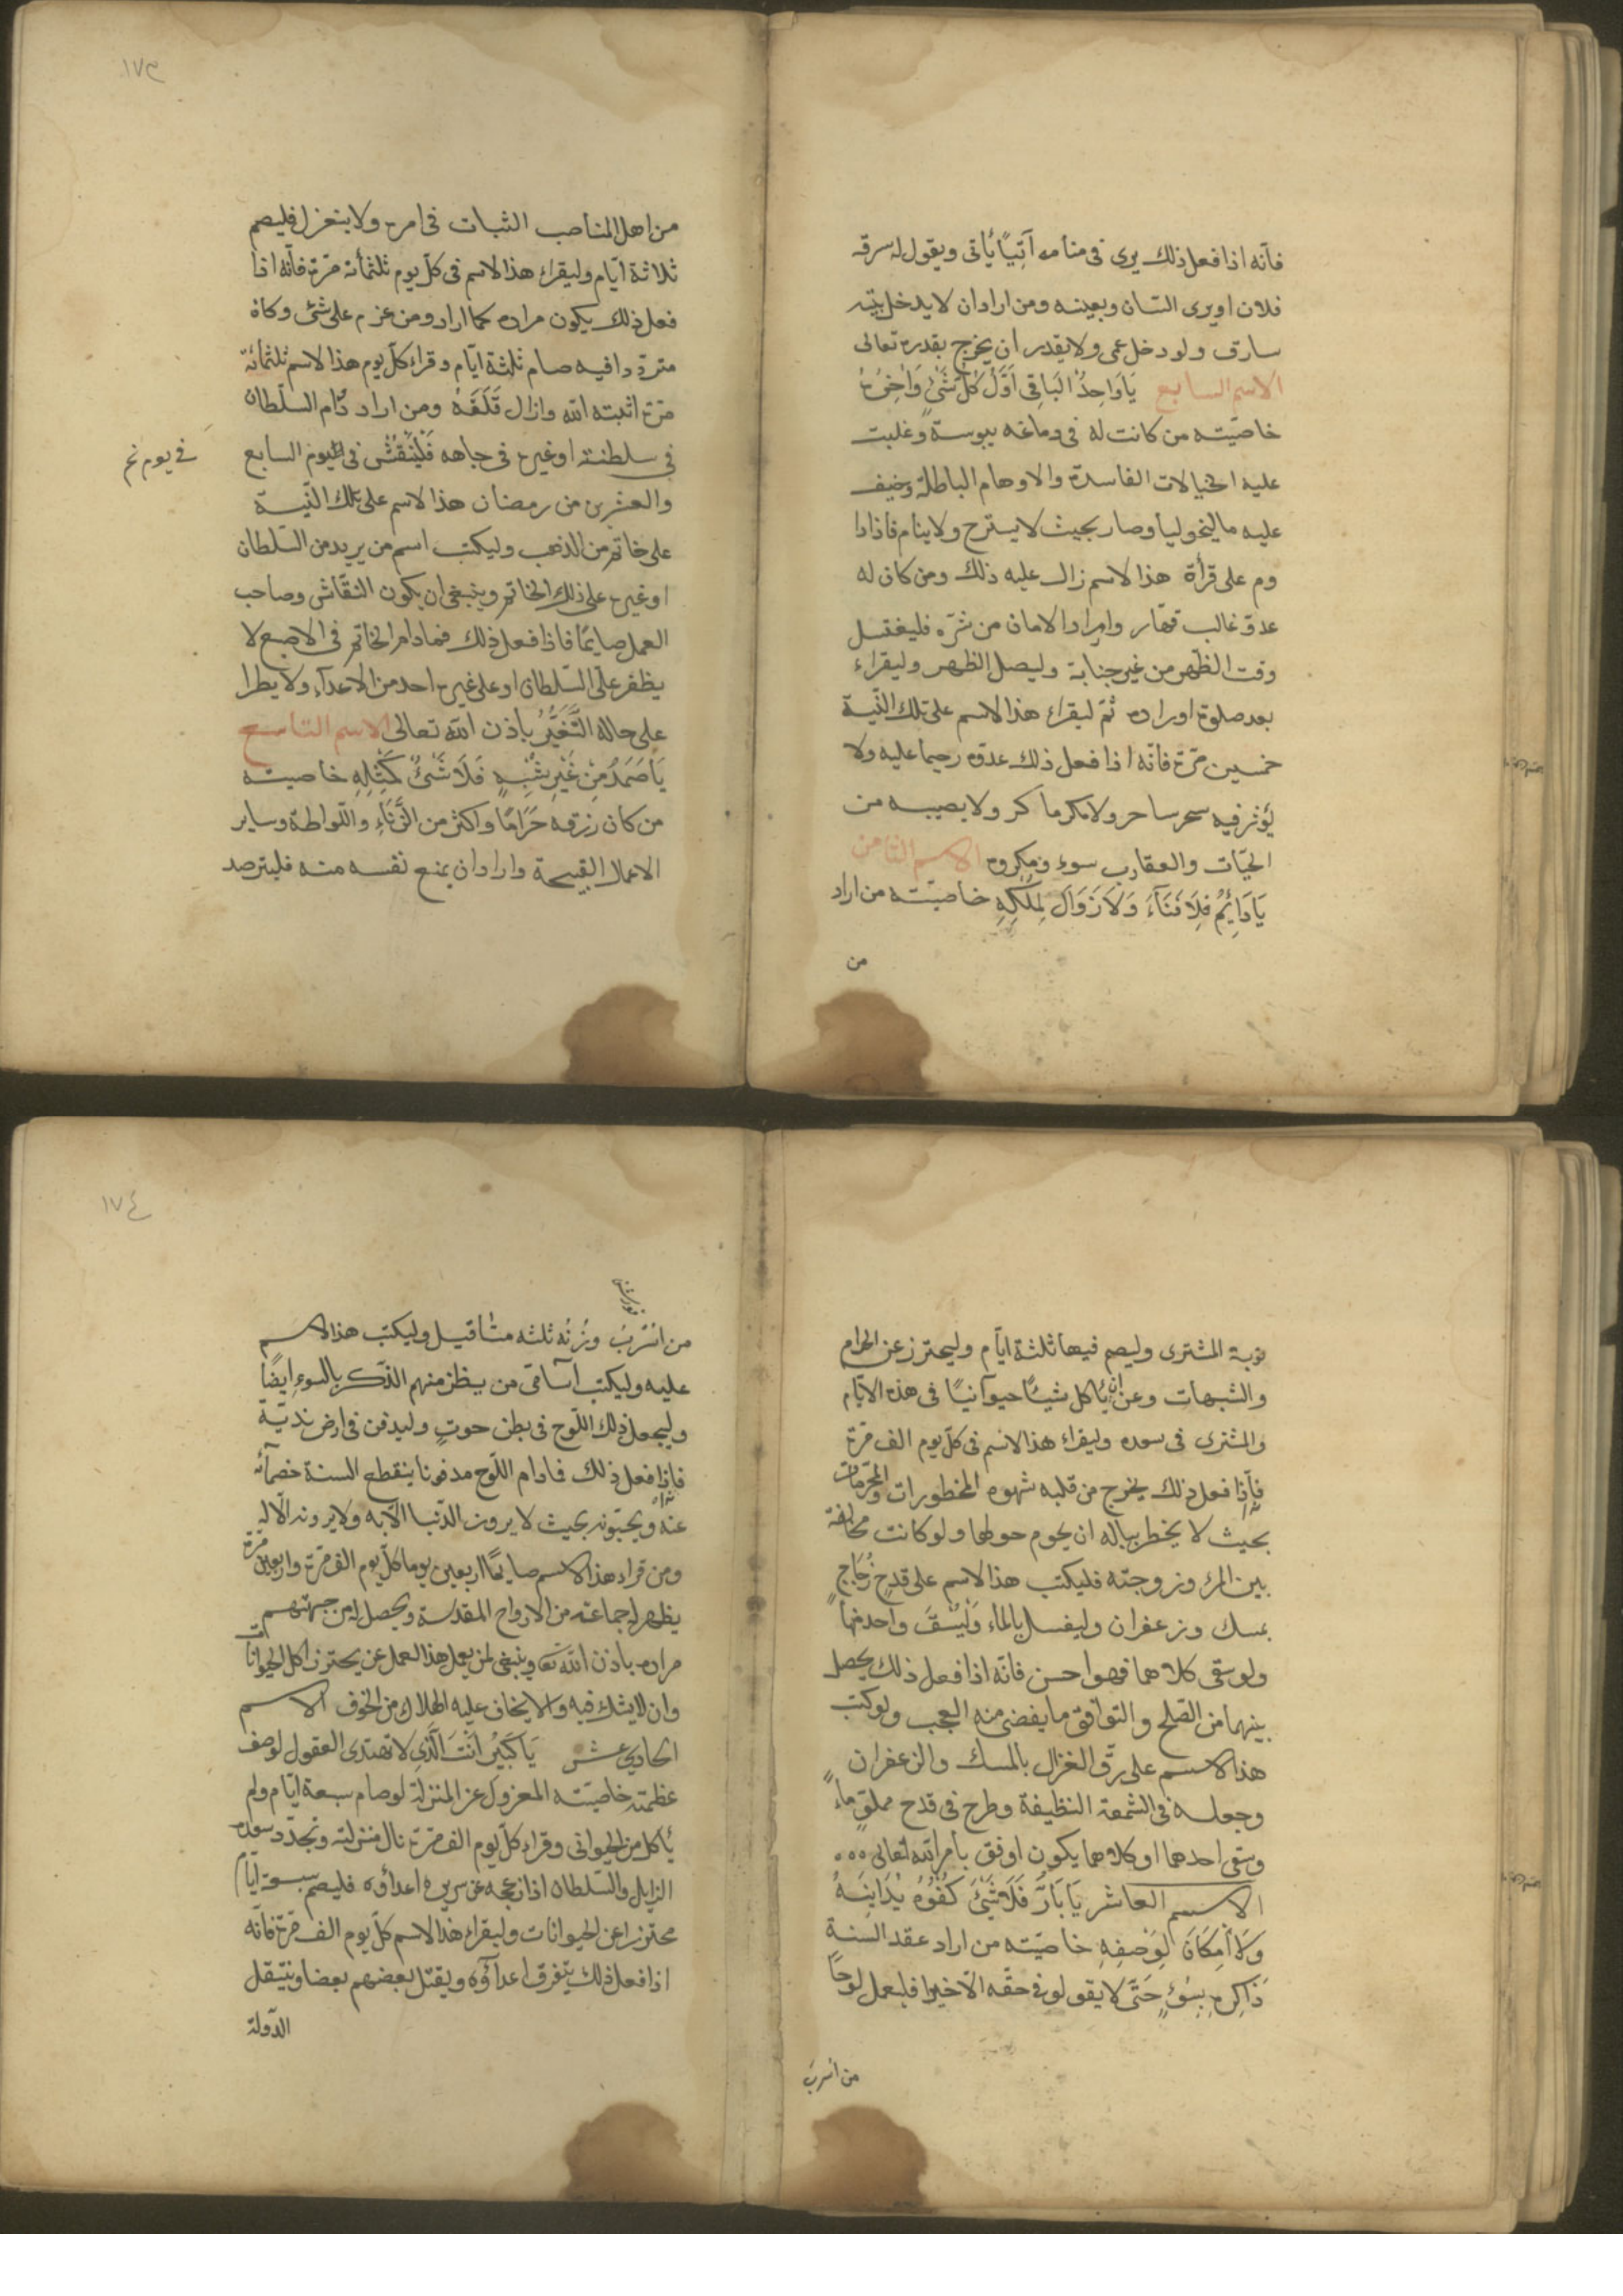 فأنه اذا فعل ذلك يرى فى منامه آتياً يأتى ويقول له سرقه
فلان او يرى السان وبعينه ومن اراد ان لا يدخل بيته
سارق ولو دخل عمى ولا يقدر ان يخرج بقدرة تعالى
الاسم السابع يَا وَاحِدُ البَاقِى اَوَّلَ كُلِّ شَئٍ وَاٰخِرُهُ
خاصيته من كانت له فى دماغه يبوسة وغلبت
عليه الخيالات الفاسدة والاوهام الباطلة وخيف
عليه ماليخوليا وصار بحيث لا يسترح ولا ينام فاذا دا
وم على قرأة هذا الاسم زال عليه ذلك ومن كان له
عدوّ غالب قهّار واراد الامان من شرّه فليغتسل
وقت الظهر من غير جنابة وليصل الظهر وليقراء
بعد صلوة اوراده ثمّ ليقراء هذا الاسم على تلك النّية
خمسين مرّة فانّه اذا فعل ذلك عدوّه رحيما عليه ولا
يؤثر فيه سحر ساحر ولا مكر ماكر ولا يصيبه من
الحيّات والعقارب سوء ومكروه الاسم الثامن
يَا دَايِمُ فِلَا فَنَآءَ وَلَا زَوَالَ لِمُلْكِهِ خاصيّته من اراد
من
١٧٣
من اهل المناصب الثبات فى امره ولا ينعزل فليصم
ثلاثة ايّام وليقراء هذا الاسم فى كلّ يوم ثلثمأئة مرّة فأنّه اذا
فعل ذلك يكون مراده كما اراد ومن عزم على شئ وكان
متردّدا فيه صام ثلثة ايّام وقراء كلّ يوم هذا الاسم ثلثمائة
مرّة اثبته الله وازال قَلَقَهُ ومن اراد دٌام السّلطان
فى سلطنته او غيره فى جاهه فَلْيَنْقُشْ فى اليوم السابع
فى يوم
والعشرين من رمضان هذا الاسم على تلك النّية
على خاتم من الذهب وليكتب اسم من يريد من السّلطان
او غيره على ذلك الخاتم وينبغى ان يكون النقّاش وصاحب
العمل صايمًا فاذا فعل ذلك فمادام الخاتم فى الاصبع لا
يظفر على السّلطان او على غيره احد من الاعدآء ولا يطرا
على حاله التَّغَيُّرُ بأذن الله تعالى الاسم التاسع
يَا صَمَدُ مِنْ غَيْرِ شِبْهٍ فَلَا شَئَ كَمِثْلِهِ خاصيته
من كان رزقه حَرَامًا واكثر من الزِّنَاءِ واللّواطة وساير
الاعمال القبيحة واراد ان يمنع نفسه منه فليترصد
نوبة المشترى وليصم فيها ثلثة ايّام وليحترز عن الحرام
والشبهات وعن ان يأكل شيئًا حيوآنيّا فى هذه الايّام
والمشترى فى سعده وليقراء هذا الاسم فى كلّ يوم الف مرّة
فأذا فعل ذلك يخرج من قلبه شهوه المخطورات والمحرّمات
بحيث لا يخطر بباله ان يحوم حولها ولو كانت مخالفة
بين المرء وزوجته فليكتب هذا الاسم على قدحٍ زُجَاجٍ
بمسك وزعفران وليغسل بالماء وَلْيُسْقَ واحد منهما
ولو سقى كلاهما فهو احسن فانّه اذا فعل ذلك يحصل
بينهما من الصّلح والتوافق ما يفضى منه العجب ولو كتب
هذا الاسم على رقّ الغزال بالمسك والزعفران
وجعله فى الشمعة النظيفة وطرح فى قدح مملوٍّ ماءٍ
وسقى احدهما او كلاهما يكون اوفق بأمر الله تعالى
الاسم العاشر يَا بَارُّ فَلَا شَئَ كُفُوُهُ يُدَانِيهُ
وَلَا اِمْكَانَ لِوَصْفِهِ خاصيّته من اراد عقد السنة
ذَاكِرِهِ بِسُوْءٍ حَتَّى لا يقولو فى حقّه الّا خيرا فليعمل لوحًا
من اسربَ
١٧٤
من اسْرُبُ وزنُه ثلثه مثاقيل وليكتب هذا الاسم
عليه وليكتب آسآمى من يظن منهم الذّكر بالسوءِ ايضًا
وليجعل ذلك اللّوح فى بطن حوتٍ وليدفن فى ارض نديّة
فاذا فعل ذلك فمادام اللّوح مدفونا ينقطع السنة خصمآئه
عنه ويحبّونه بحيث لا يرون الدّنيا الّا به ولا يرونه الّا له
ومن قراء هذا الاسم صايمًا اربعين يوما كلّ يوم الف مرّة واربعين مرّة
يظهر له جماعة من الارواح المقدّسة ويحصل له من جهتهم
مراده بأذن الله تع وينبغى لمن يعمل هذا العمل عن يحترز اكل الحيوانات
وان لا يشك فيه والا يخاف عليه الهلاك من الخوف الاسم
الحادى عشر يَا كَبِيْرُ اَنْتَ الَّذِى لا تهتدى العقول لوصف
عظمته خاصيّته المعزول عن المنزلة لو صام سبعة ايّام ولم
يأكل من الحيوانى وقراء كلّ يوم الف مرّة نال منزلته وتجدّد سعده
الزايل والسّلطان اذا ازعجه عن سريره اعداؤه فليصم سبعة ايّام
محترزا عن الحيوانات وليقراء هذا الاسم كلّ يوم الف مرّة فأنّه
اذا فعل ذلك يتفرق اعدآؤه ويقتل بعضهم بعضا وينتقل
الدّولة